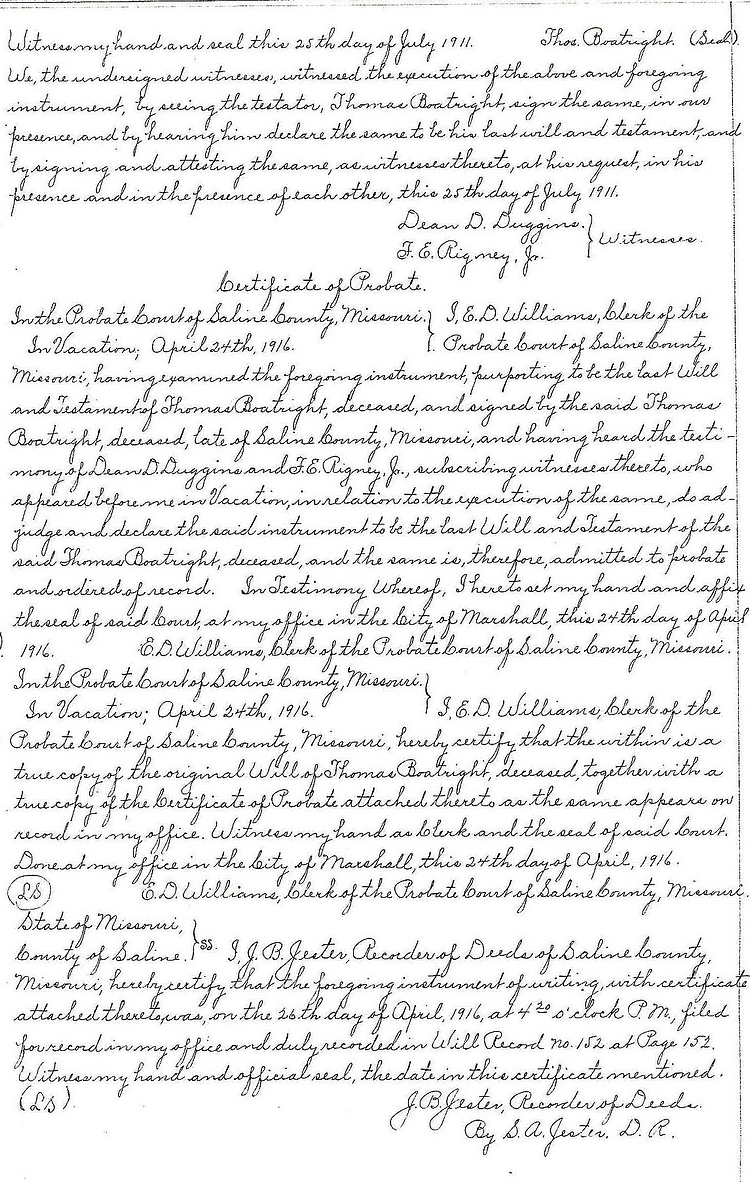 Witness my hand and seal this 25th day of July 1911. Thos. Boatright. (Seal)
We, the undersigned witnesses, witnessed the execution of the above and foregoing
instrument, by seeing the testator, Thomas Boatright, sign the same, in our
presence, and by hearing him declare the same to be his last will and testament, and
by signing and attesting the same, as witnesses thereto, at his request, in his
presence and in the presence of each other, this 25th day of July 1911.
Dean D. Duggins.
F. E. Rigney, Jr. } Witnesses.
Certificate of Probate.
In the Probate Court of Saline County, Missouri. } I, E. D. Williams, Clerk of the
In Vacation; April 24th, 1916. Probate Court of Saline County,
Missouri, having examined the foregoing instrument, purporting to be the last Will
and Testament of Thomas Boatright, deceased, and signed by the said Thomas
Boatright, deceased, late of Saline County, Missouri, and having heard the testi-
mony of Dean D. Duggins and F. E. Rigney, Jr., subscribing witnesses thereto, who
appeared before me in Vacation, in relation to the execution of the same, do ad-
judge and declare the said instrument to be the last Will and Testament of the
said Thomas Boatright, deceased, and the same is, therefore, admitted to probate
and ordered of record. In Testimony Whereof, I hereto set my hand and affix
the seal of said Court, at my office in the City of Marshall, this 24th day of April
1916. E. D. Williams, Clerk of the Probate Court of Saline County, Missouri.
In the Probate Court of Saline County, Missouri. }
In Vacation; April 24th, 1916. I, E. D. Williams, Clerk of the
Probate Court of Saline County, Missouri, hereby certify that the within is a
true copy of the original Will of Thomas Boatright, deceased, together with a
true copy of the Certificate of Probate attached thereto as the same appears on
record in my office. Witness my hand as Clerk and the seal of said Court.
Done at my office in the City of Marshall, this 24th day of April, 1916.
(LS) E. D. Williams, Clerk of the Probate Court of Saline County, Missouri.
State of Missouri,
County of Saline. } ss. I, J. B. Jester, Recorder of Deeds of Saline County,
Missouri, hereby certify that the foregoing instrument of writing, with certificate
attached thereto, was, on the 26th day of April, 1916, at 4 20 o'clock P. M., filed
for record in my office and duly recorded in Will Record no. 152 at Page 152.
Witness my hand and official seal, the date in this certificate mentioned.
(LS). J. B. Jester, Recorder of Deeds.
By S. A. Jester. D. R.